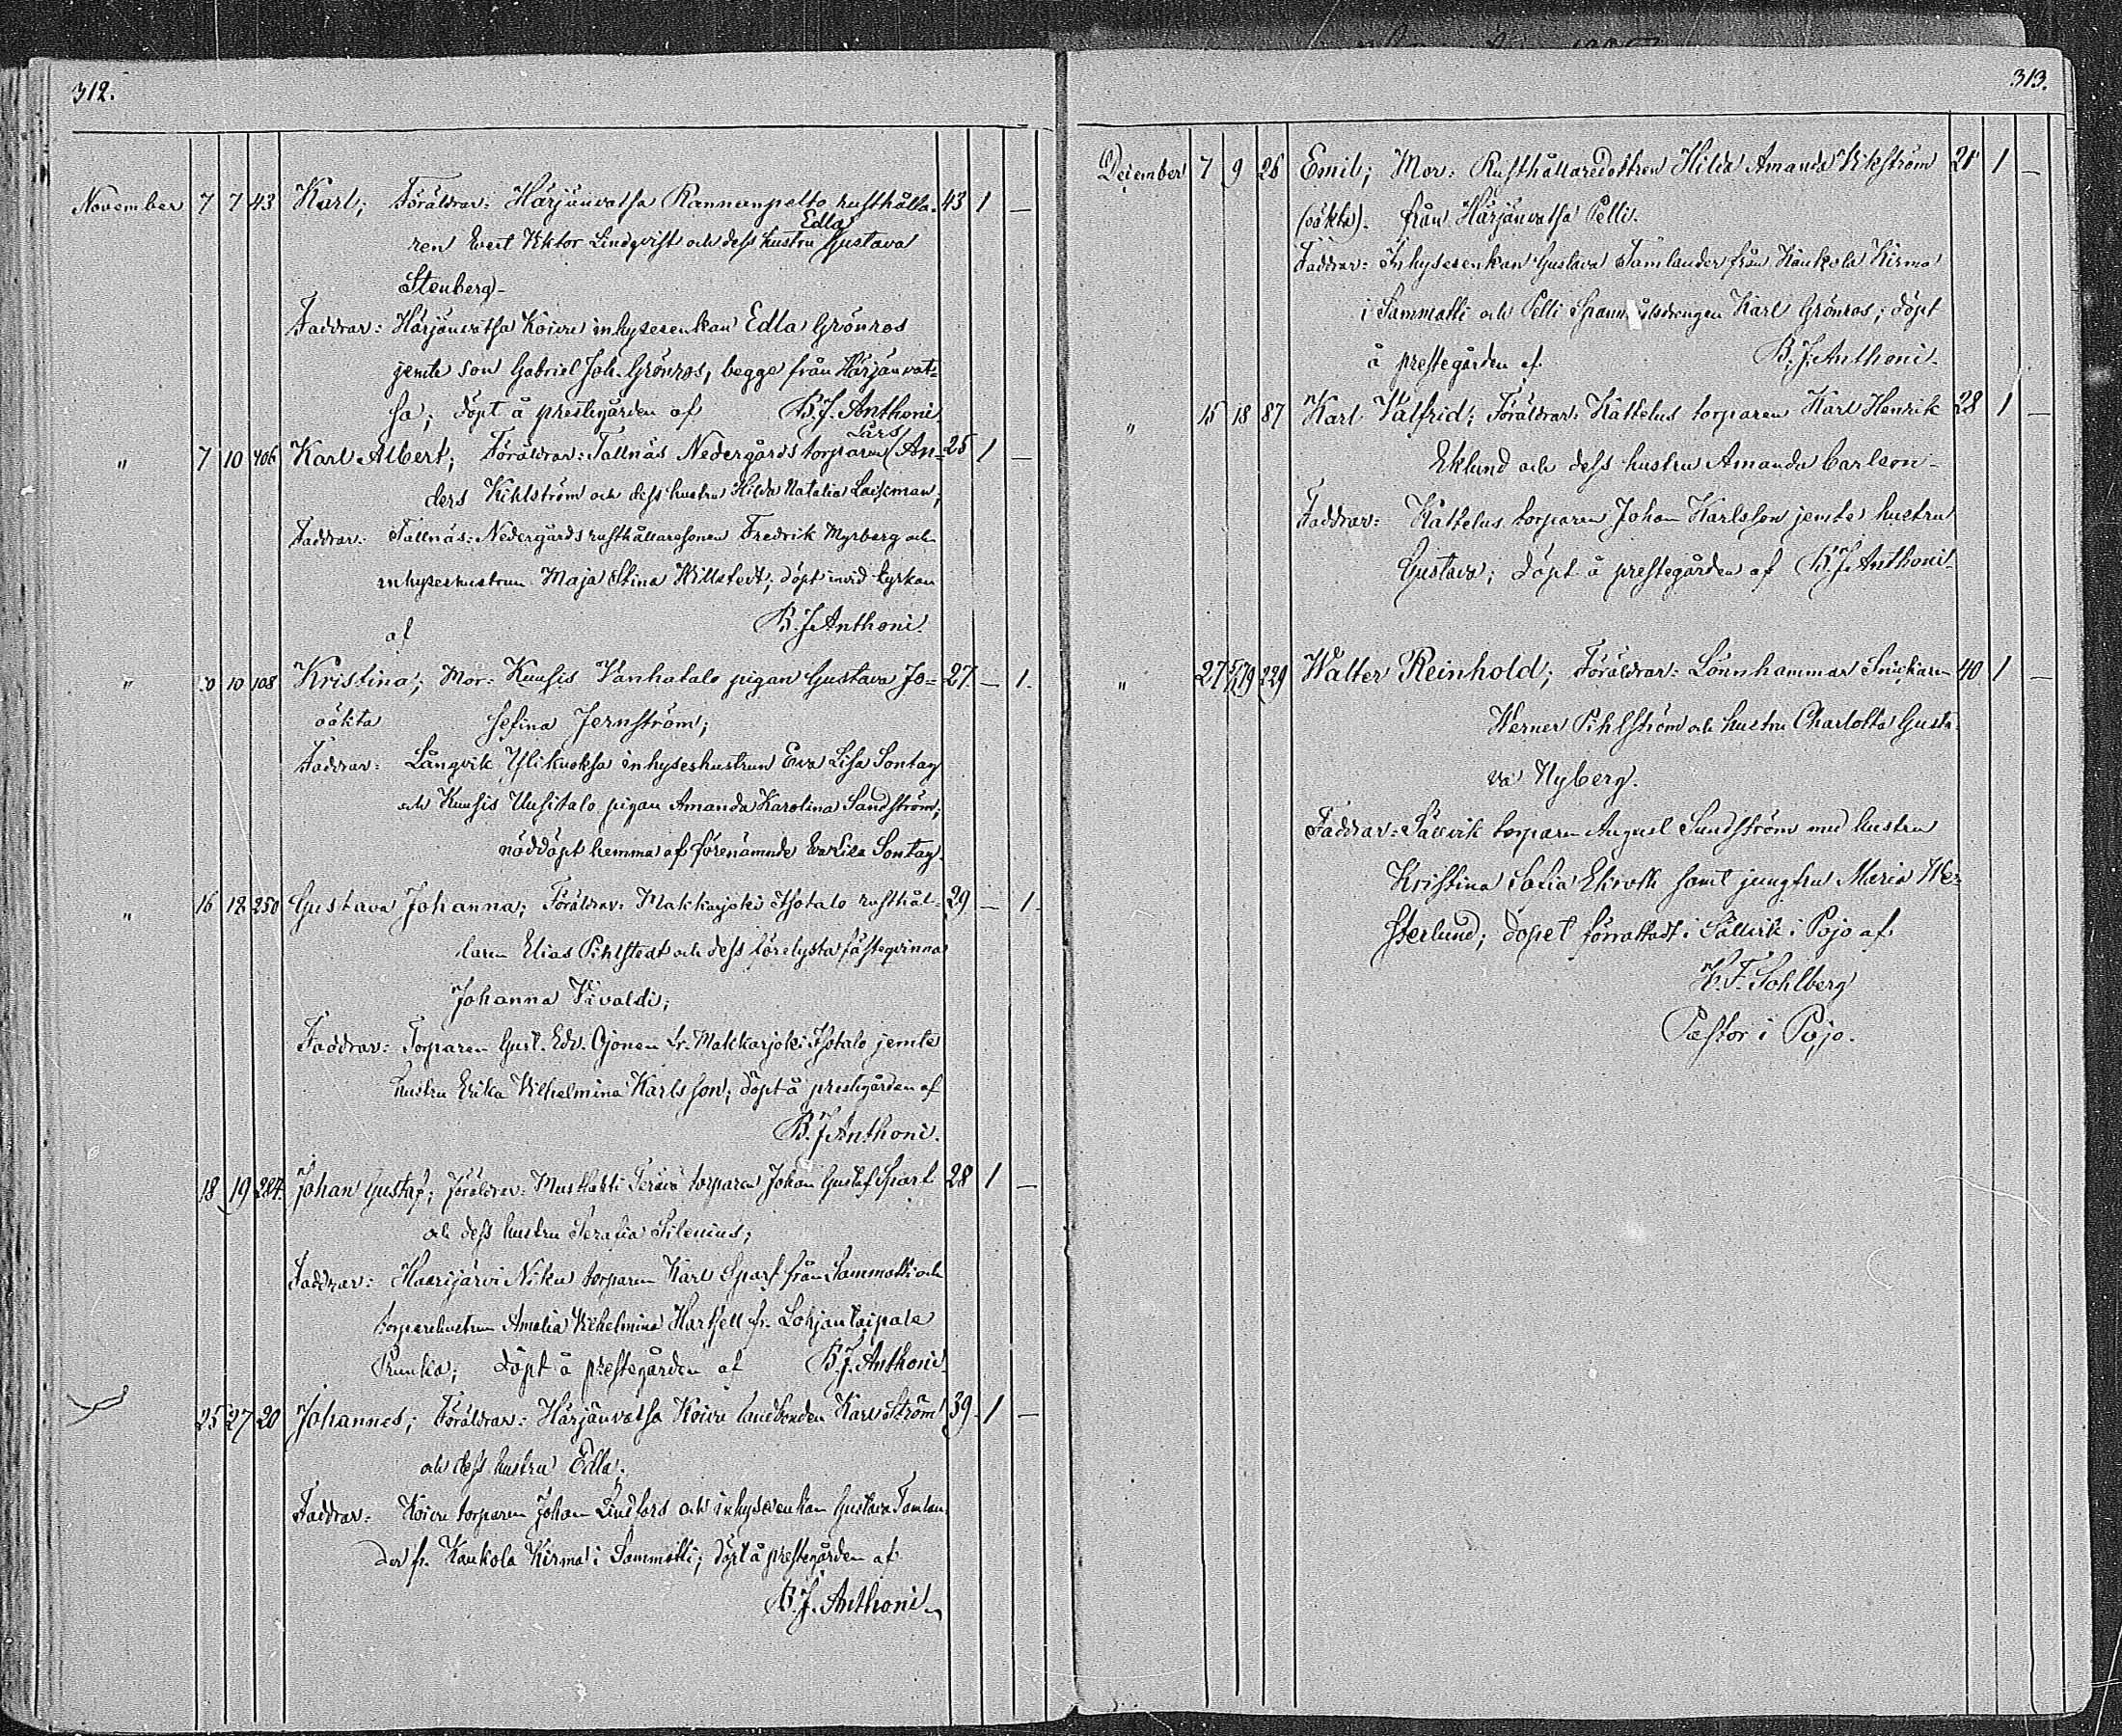 312.
November 7 7 43 Karl; Föräldrar: Härjänvatsa Rannanpelto rusthålla- 43 1 —
Edla
ren Evert Viktor Lindqvist och dess hustru Gustava
Stenberg-
Faddrar: Härjänvatsa Koivu inhysesenkan Edla Grönros
jemte son Gabriel Joh. Grönros, begge från Härjänvat-
sa; döpt å prestegården af B. J. Anthoni.
Lars
" 7 10 406 Karl Albert; Föräldrar: Tallnäs Nedergårds torparen An- 25 1 —
ders Kihlström och dess hustru Hilda Natalia Lackman;
Faddrar: Tallnäs: Nedergårds rusthållaresonen Fredrik Myrberg och
inhyseshustrun Maja Stina Hillstedt; döpt invid kyrkan
af B. J. Anthoni.
" 10 108 Kristina; Mor: Kuusis Vanhatalo pigan Gustava Jo- 27. — 1.
oäkta sefina Jernström;
Faddrar: Långvik Ylikuoksa inhyseshustrun Eva Lisa Sontag
och Kuusis Uusitalo pigan Amanda Karolina Sandström;
nöddöpt hemma af förenämnde Eva Lisa Sontag.
" 16 18 250 Gustava Johanna; Föräldrar: Makkarjoki Isotalo rusthål- 29 — 1.
laren Elias Pihlstedt och dess förelysta fästeqvinna
Johanna Vivaldi;
Faddrar: Torparen Gust. Edv. Ojonen fr. Makkarjoki Isotalo jemte
hustru Erika Vilhelmina Karlsson; döpt å prestegården af
B. J. Anthoni.
18 19 284. Johan Gustaf; Föräldrar: Mustlahti Terävä torparen Johan Gustaf Sparf 28 1 —
och dess hustru Serafia Silenius;
Faddrar: Haarijärvi Niku torparen Karl Sparf från Sammatti och
torparehustrun Amalia Vilhelmina Hartsell fr. Lohjantaipale
Prunka; döpt å prestegården af B. J. Anthoni.
25 27 20 Johannes; Föräldrar: Härjänvatsa Koivu landbonden Karl Ström 39 1 —
och dess hustru Edla;
Faddrar: Koivu torparen Johan Lindfors och inhysesenkan Gustava Tamlan-
der fr. Kaukola Kirmo i Sammatti; döpt å prestegården af
B. J. Anthoni.
313.
December 7 9 26 Emil; Mor: Rusthållaredottren Hilda Amanda Vikström 21 1 —
(oäkta). från Härjänvatsa Pelli.
Faddrar: Inhysesenkan Gustava Tamlander från Kaukola Kirmo
i Sammatti och Pelli Karl Grönros; döpt
å prestegården af B. J. Anthoni.
" 15 18 87 Karl Valfrid; Föräldrar: Kattelus torparen Karl Henrik 28 1 —
Eklund och dess hustru Amanda Carlson-
Faddrar: Kattelus torparen Johan Karlsson jemte hustru
Gustava; döpt å prestegården af B. J. Anthoni.
" 27 229 Walter Reinhold; Föräldrar: Lönnhammar Snickaren 40 1 —
Werner Pihlström och hustru Charlotta Gusta-
va Nyberg.
Faddrar: Sällvik torparen August Sundström med hustru
Kristina Sofia Ekroth samt jungfru Maria We-
sterlund; dopet förrättadt i Sällvik i Pojo af
K. F. Sohlberg
Pastor i Pojo.